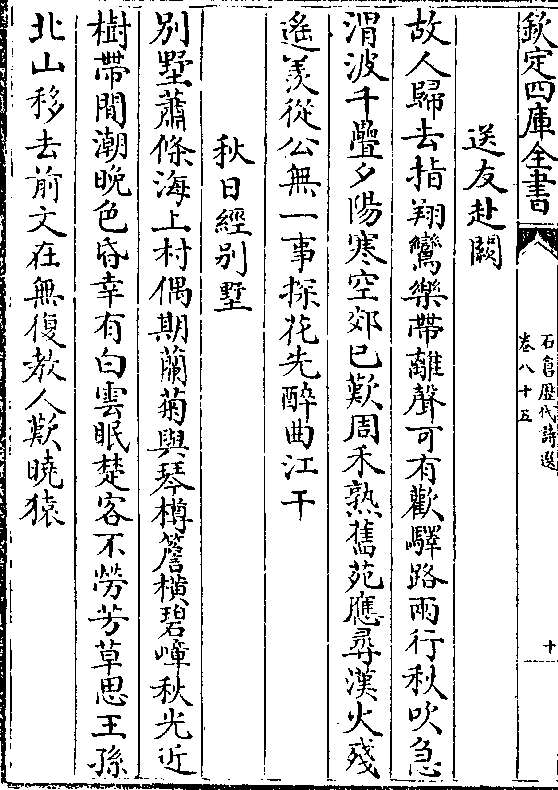 欽定四庫全書
石倉歴代詩選
卷八十五
十
送友赴闕
故人歸去指翔鸞樂帶離聲可有歡驛路雨行秋吹急
渭波千疊夕陽寒空郊已歎周禾熟舊苑應尋漢火殘
遙羨從公無一事探花先醉曲江干
秋日經别墅
别墅蕭條海上村偶期蘭菊與琴樽簷橫碧嶂秋光近
樹帶閒潮晚色昏幸有白雲眠楚客不勞芳草思王孫
北山移去前文在無復教人歎曉猿